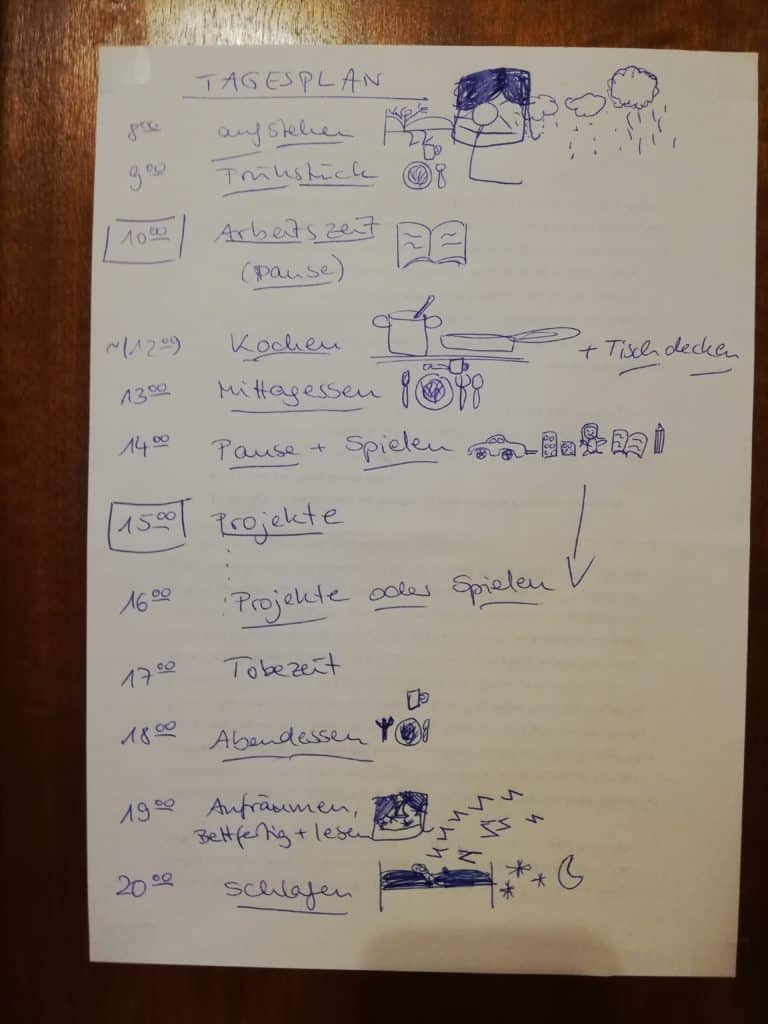 TAGESPLAN
8 00 aufstehen
9 00 Frühstück
10 00 Arbeitszeit
(Pause)
~(12 00) Kochen + Tisch decken
13 00 Mittagessen
14 00 Pause + Spielen
15 00 Projekte
16 00 Projekte oder Spielen
17 00 Tobezeit
18 00 Abendessen
19 00 Aufräumen,
Bettfertig + lesen
20 00 schlafen